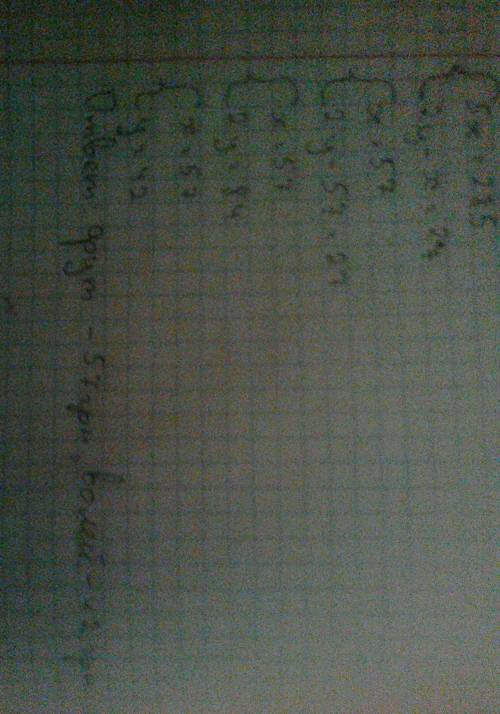 { 5x = 285
{ 2y - x = 27
{ x = 57
{ 2y - 57 = 27
{ x = 57
{ 2y = 84
{ x = 57
{ y = 42
Ответ фут - 57грн, волей - 42 грн